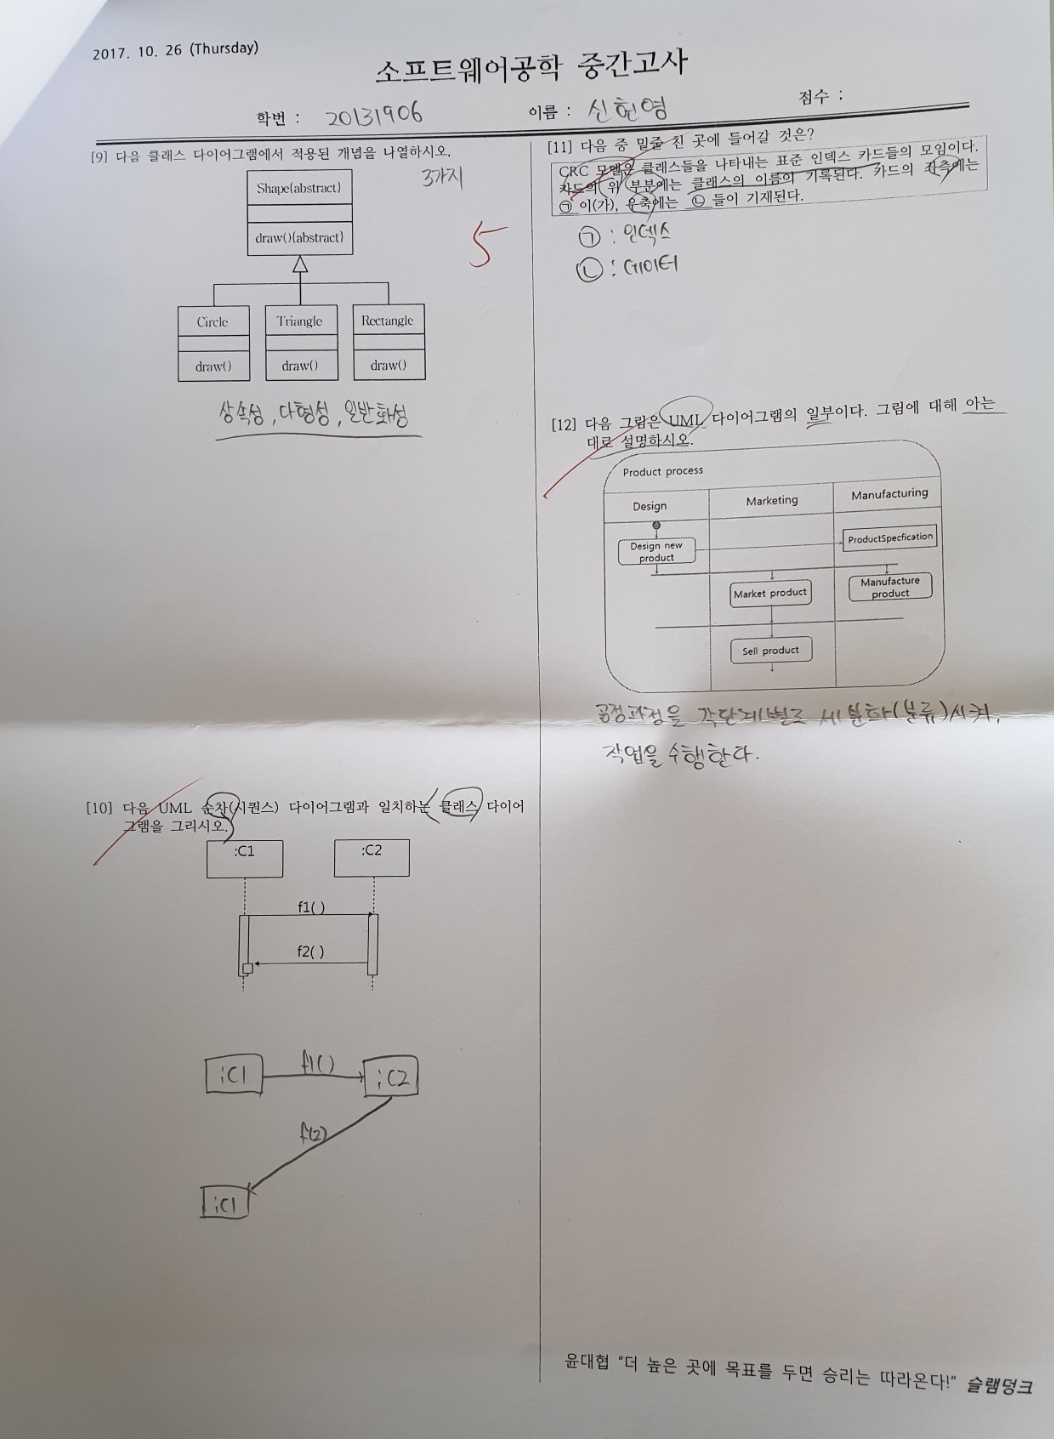 2017. 10. 26 (Thursday)
소프트웨어공학 중간고사
학번 : 20131906 이름 : 신헌영 점수 :
[9] 다음 클래스 다이어그램에서 적용된 개념을 나열하시오.
3가지
Shape(abstract)
draw(){abstract}
5
Circle Triangle Rectangle
draw() draw() draw()
상속성, 다형성, 일반화성
[10] 다음 UML 순차(시퀀스) 다이어그램과 일치하는 클래스 다이어
그램을 그리시오.
:C1 :C2
f1( )
f2( )
:C1 f1() :C2
f(2)
:C1
[11] 다음 중 밑줄 친 곳에 들어갈 것은?
CRC 모델은 클래스들을 나타내는 표준 인덱스 카드들의 모임이다.
카드의 위 부분에는 클래스의 이름이 기록된다. 카드의 좌측에는
㉠ 이(가), 우측에는 ㉡ 들이 기재된다.
㉠ : 인덱스
㉡ : 데이터
[12] 다음 그림은 UML 다이어그램의 일부이다. 그림에 대해 아는
대로 설명하시오.
Product process
Design Marketing Manufacturing
Design new
product
ProductSpecfication
Market product
Manufacture
product
Sell product
공정과정을 각단계별로 세분화(분류)시켜,
작업을 수행한다.
윤대협 "더 높은 곳에 목표를 두면 승리는 따라온다!" 슬램덩크